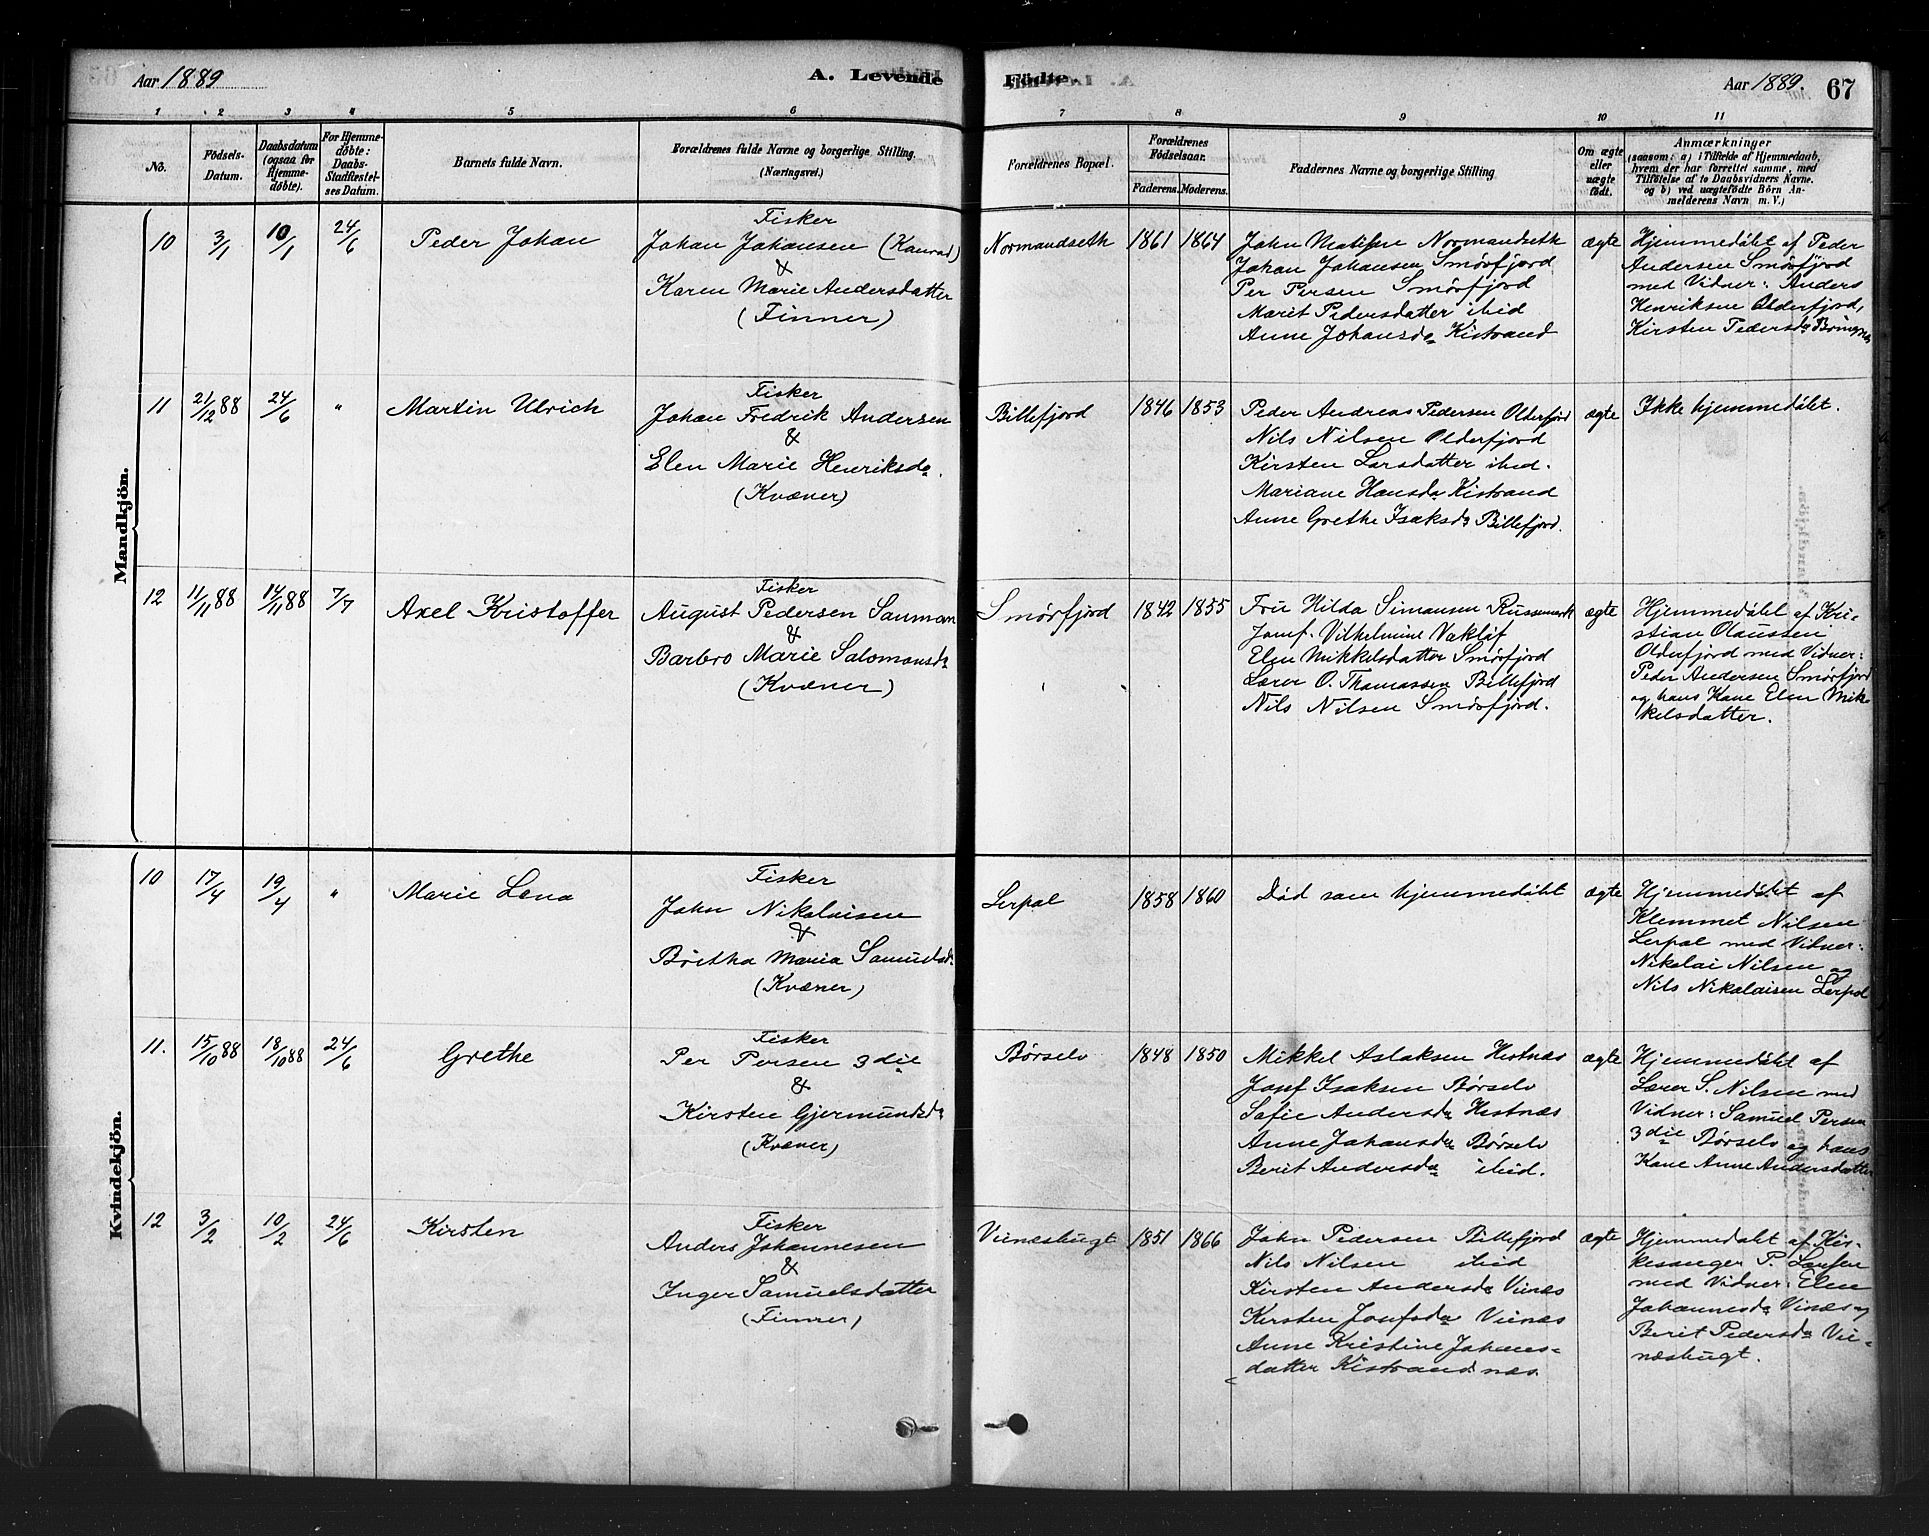 Aar 1889
A. Levende
Födte.
Aar 1889.
67
1 2 3 4 5 6 7 8 9 10 11
No.
Födsels-
Datum.
Daabsdatum
(ogsaa for
Hjemme-
döbte).
For Hjemme-
döbte:
Daabs-
Stadfæstel-
ses Datum.
Barnets fulde Navn.
Forældrenes fulde Navne og borgerlige Stilling.
(Næringsvei.)
Forældrenes Bopæl.
Forældrenes
Födselsaar.
Faderens. Moderens.
Faddernes Navne og borgerlige Stilling
Om ægte
eller
uægte
födt.
Anmærkninger
(saasom: a) i Tilfælde af Hjemmedaab,
hvem der har forrettet samme, med
Tilföielse af to Daabsvidners Navne.
og b) ved uægtefödte Börn An-
melderens Navn m. V.)
Mandkjön.
10 3/1 10/1 24/6 Peder Johan
Fisker
Johan Johansen (Konrad)
&
Karen Marie Andersdatter
(Finner)
Normandseth 1861 1864
John Mathsre Normandseth
Johan Johansen Smörfjord
Per Persen Smörfjord
Marit Pedersdatter ibid
Anne Johansda Kistrand
ægte
Hjemmedöbt af Peder
Andersen Smörfjord
med Vidner: Anders
Henriksen Olderfjord,
Kirsten Pedersda
11 21/12 88 24/6 " Martin Ulrich
Fisker
Johan Fredrik Andersen
&
Elen Marie Henriksda.
(Kvæner)
Billefjord 1846 1853
Peder Andreas Pedersen Olderfjord
Nils Nilsen Olderfjord
Kirsten Larsdatter ibid.
Mariane Hansda Kistrand
Anne Grethe Isaksda Billefjord.
ægte
Ikke hjemmedöbt.
12 11/11 88 14/11 88 7/7 Axel Kristoffer
Fisker
August Pedersen Sauman
&
Barbro Marie Salomonsda
(Kvæner)
Smörfjord 1842 1855
Fru Hilda Simonsen Russemark
Jomf. Vilhelmine
Elen Mikkelsdatter Smörfjord
Lærer O. Thomassen Billefjord
Nils Nilsen Smörfjord.
ægte
Hjemmedöbt af Kri-
stian Olaussen
Olderfjord med Vidner:
Peder Andersen Smörfjord
og hans Kone Elen Mik-
kelsdatter.
Kvindekjön.
10 17/4 19/4 " Marie Lena
Fisker
John Nikolaisen
&
Britha Maria Samuelsda
(Kvæner)
Lerpol 1858 1860
Död som hjemmedöbt
ægte
Hjemmedöbt af
Klemmet Nilsen
Lerpol med Vidner:
Nikolai Nilsen og
Nils Nikolaisen Lerpol
11. 15/10 88 18/10 88 24/6 Grethe
Fisker
Per Persen 3die
&
Kirsten Gjermundsda
(Kvæner)
Börselv 1848 1850
Mikkel Aslaksen Hestnæs
Josef Isaksen Börselv
Sofie Andersda Hestnæs
Anne Johansda Börselv
Berit Andersda ibid.
ægte
Hjemmedöbt af
Lærer S. Nilsen med
Vidner: Samuel Persen
3die Börselv og hans
Kone Anne Andersdatter
12 3/2 10/2 24/6 Kirsten
Fisker
Anders Johannesen
&
Inger Samuelsdatter
(Finner)
Viinæsbugt 1851 1866
John Pedersen Billefjord
Nils Nilsen ibid
Kirsten Andersda Viinæs
Kirsten Josefsda Viinæs
Anne Kristine Johans-
datter Kistrandnæs.
ægte
Hjemmedöbt af Kir-
kesanger P. Larsen
med Vidner: Elen
Johannesda Vinæs og
Berit Pedersda Vii-
næsbugt.